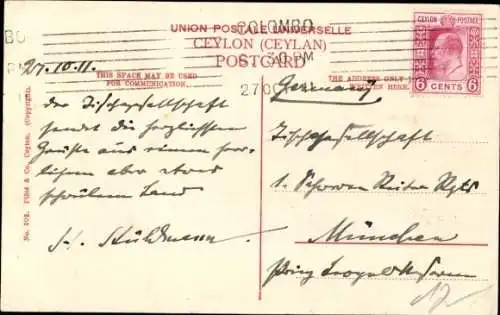 UNION POSTALE UNIVERSELLE
COLOMBO
CEYLON (CEYLAN)
POSTCARD
CEYLON POSTAGE
6 CENTS 6
27.10.11.
THIS SPACE MAY BE USED
FOR COMMUNICATION.
THE ADDRESS ONLY
HERE.
27 OC
PM
Germany
der Tischgesellschaft
sendet die herzlichsten
Grüße aus einem herr-
lichen aber etwas
schwülen Land
Tischgesellschaft
1. Schweren Reiter Rgts
München
No. 102. Plâté & Co., Ceylon. (Copyright).